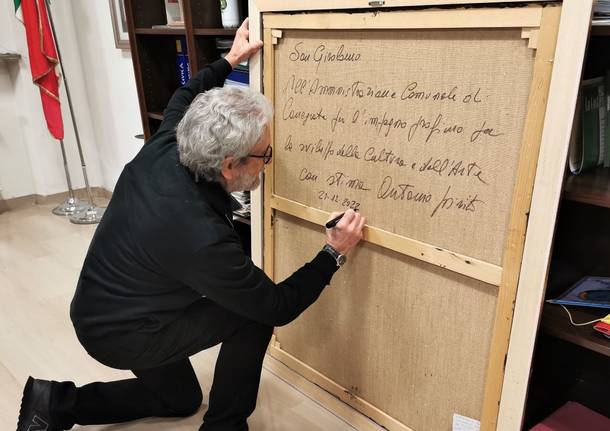 San Girolamo
All'Amministrazione Comunale di
per l'impegno profuso per
lo sviluppo della Cultura e dell'Arte
con stima Antonio
21.12.2022